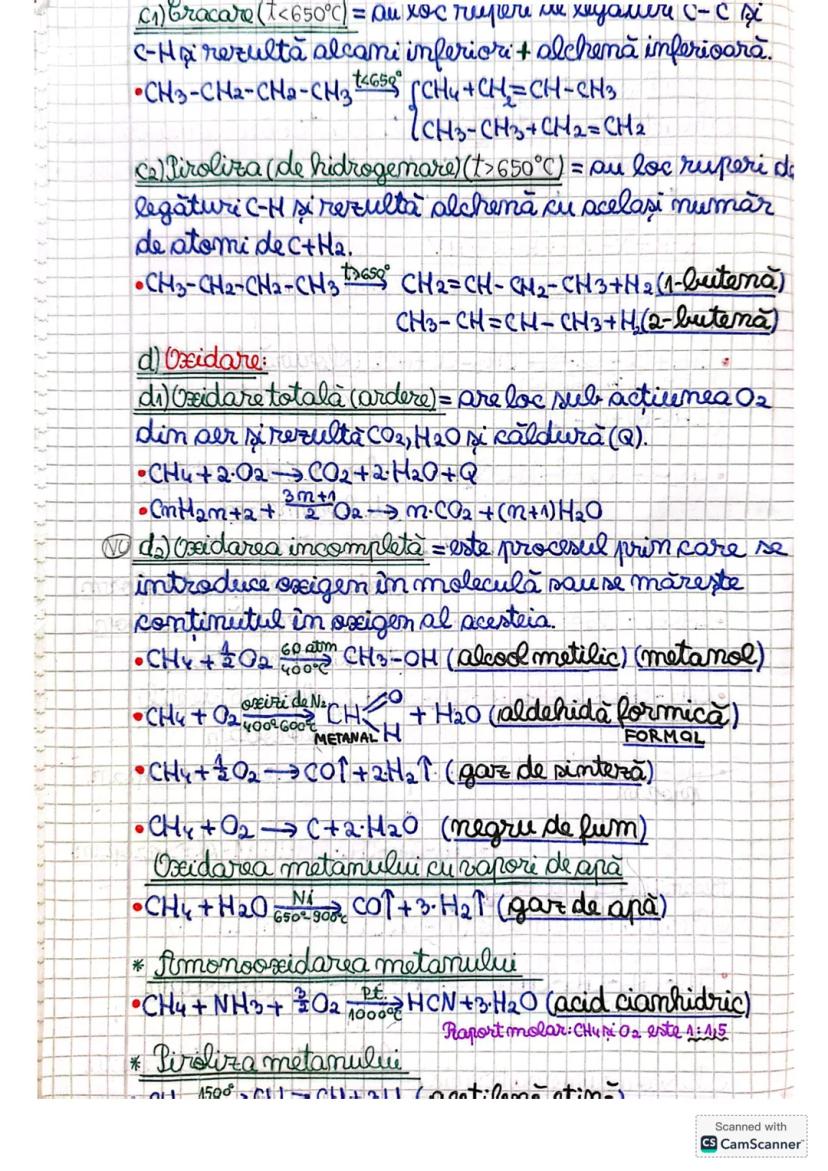 c1) Cracare (t<650°C) = au loc ruperi de legături C-C și
C-H și rezultă alcani inferiori + alchenă inferioară.
•CH3-CH2-CH2-CH3 t<650° → CH4+CH2=CH-CH3
CH3-CH3+CH2=CH2
c2) Piroliza (de hidrogenare) (t>650°C) = au loc ruperi de
legături C-H și rezultă alchenă cu același număr
de atomi de C+H2.
•CH3-CH2-CH2-CH3 t>650° → CH2=CH-CH2-CH3+H2 (1-butenă)
CH3-CH=CH-CH3+H2 (2-butenă)
d) Oxidare:
d1) Oxidare totală (ardere) = are loc sub acțiunea O2
din aer și rezultă CO2, H2O și căldură (Q).
•CH4 + 2·O2 → CO2 + 2·H2O + Q
•CnH2n+2 + 3n+1/2 O2 → n·CO2 + (n+1)H2O
NU d2) Oxidarea incompletă = este procesul prin care se
introduce oxigen în moleculă sau se mărește
conținutul în oxigen al acesteia.
•CH4 + 1/2 O2 60 atm → 400°C CH3-OH (alcool metilic) (metanol)
•CH4 + O2 oxizi de N2 → 400°-600°C CH=O H + H2O (aldehidă formică)
METANAL FORMOL
•CH4 + 1/2 O2 → CO↑ + 2H2↑ (gaz de sinteză)
•CH4 + O2 → C + 2·H2O (negru de fum)
Oxidarea metanului cu vapori de apă
•CH4 + H2O Ni → 650°-900°C CO↑ + 3·H2↑ (gaz de apă)
* Amonooxidarea metanului
•CH4 + NH3 + 3/2 O2 Pt → 1000°C HCN + 3·H2O (acid cianhidric)
Raport molar: CH4 și O2 este 1:1,5
* Piroliza metanului
1500°
Scanned with
CS CamScanner